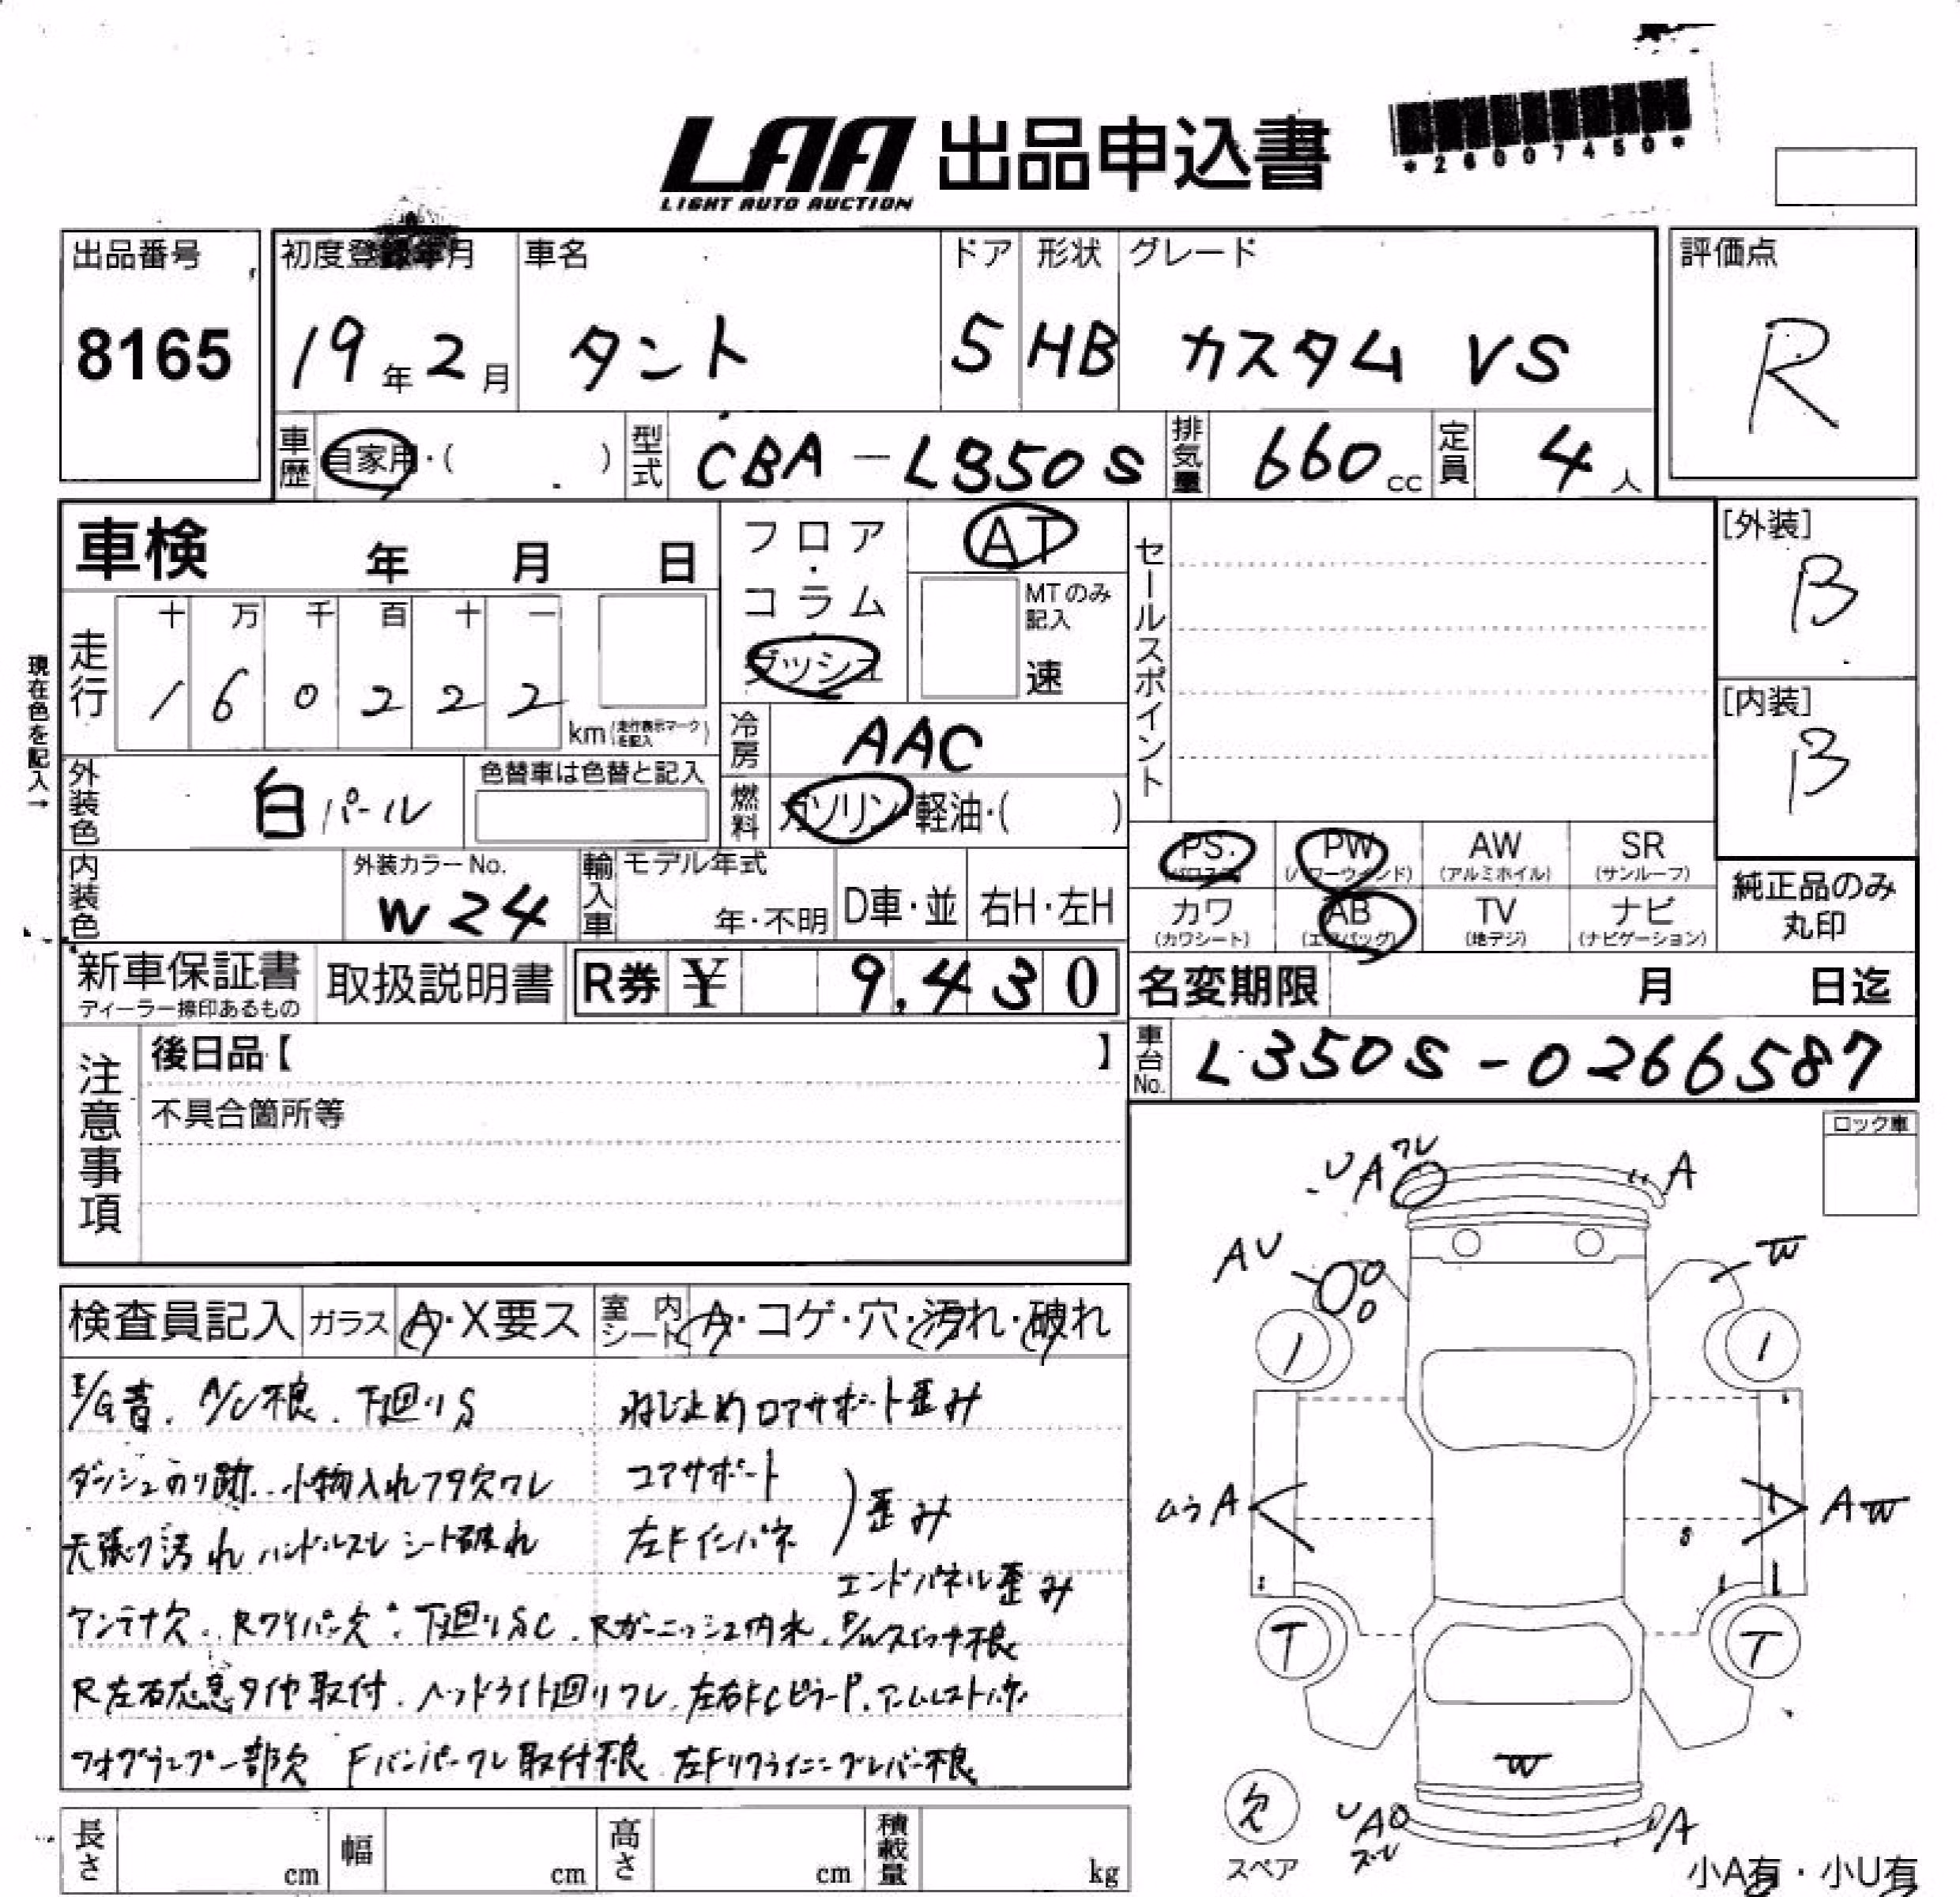 LAA 出品申込書
LIGHT AUTO AUCTION
*26007450*
出品番号 初度登録年月 車名 ドア 形状 グレード 評価点
8165 19年2月 タント 5 HB カスタム VS R
車歴 自家用・( ) 型式 CBA-L350S 排気量 660cc 定員 4人
車検 年 月 日 フロア・コラム・ダッシュ AT セールスポイント [外装]
B
MTのみ記入 速
現在色を記入→
走行 十 万 千 百 十 一
1 6 0 2 2 2 km(走行表示マークを記入)
[内装]
B
冷房 AAC
外装色 白パール 色替車は色替と記入 燃料 ガソリン・軽油・( )
PS (パワステ) PW (パワーウインド) AW (アルミホイル) SR (サンルーフ)
内装色 外装カラーNo. W24 輸入車 モデル年式 年・不明 D車・並 右H・左H
カワ (カワシート) AB (エアバッグ) TV (地デジ) ナビ (ナビゲーション) 純正品のみ丸印
新車保証書 ディーラー捺印あるもの 取扱説明書 R券 ¥ 9,430 名変期限 月 日迄
車台No. L350S-0266587
注意事項 後日品【 】
不具合箇所等
ロック車
検査員記入 ガラス A・X要ス 室内シート A・コゲ・穴・汚れ・破れ
E/G音. A/C不良. 下廻りS ねじ止めロアサポート歪み
ダッシュのり跡. 小物入れフタ欠ワレ コアサポート
天張り汚れ ハンドルスレ シート破れ 左Fインパネ 歪み
エンドパネル歪み
アンテナ欠. Rワイパー欠. 下廻りSC. Rガーニッシュ内水. P/Wスイッチ不良
R左右応急タイヤ取付. ヘッドライト廻りワレ. 左右FCピラーP. アームレスト
フォグランプ一部欠 Fバンパーワレ取付不良 左Fリクライニングレバー不良
UA ワレ A
AU W
1 1
ムラA AW
S
T T
W
欠 UA スレ A
スペア
小A有・小U有
長さ cm 幅 cm 高さ cm 積載量 kg